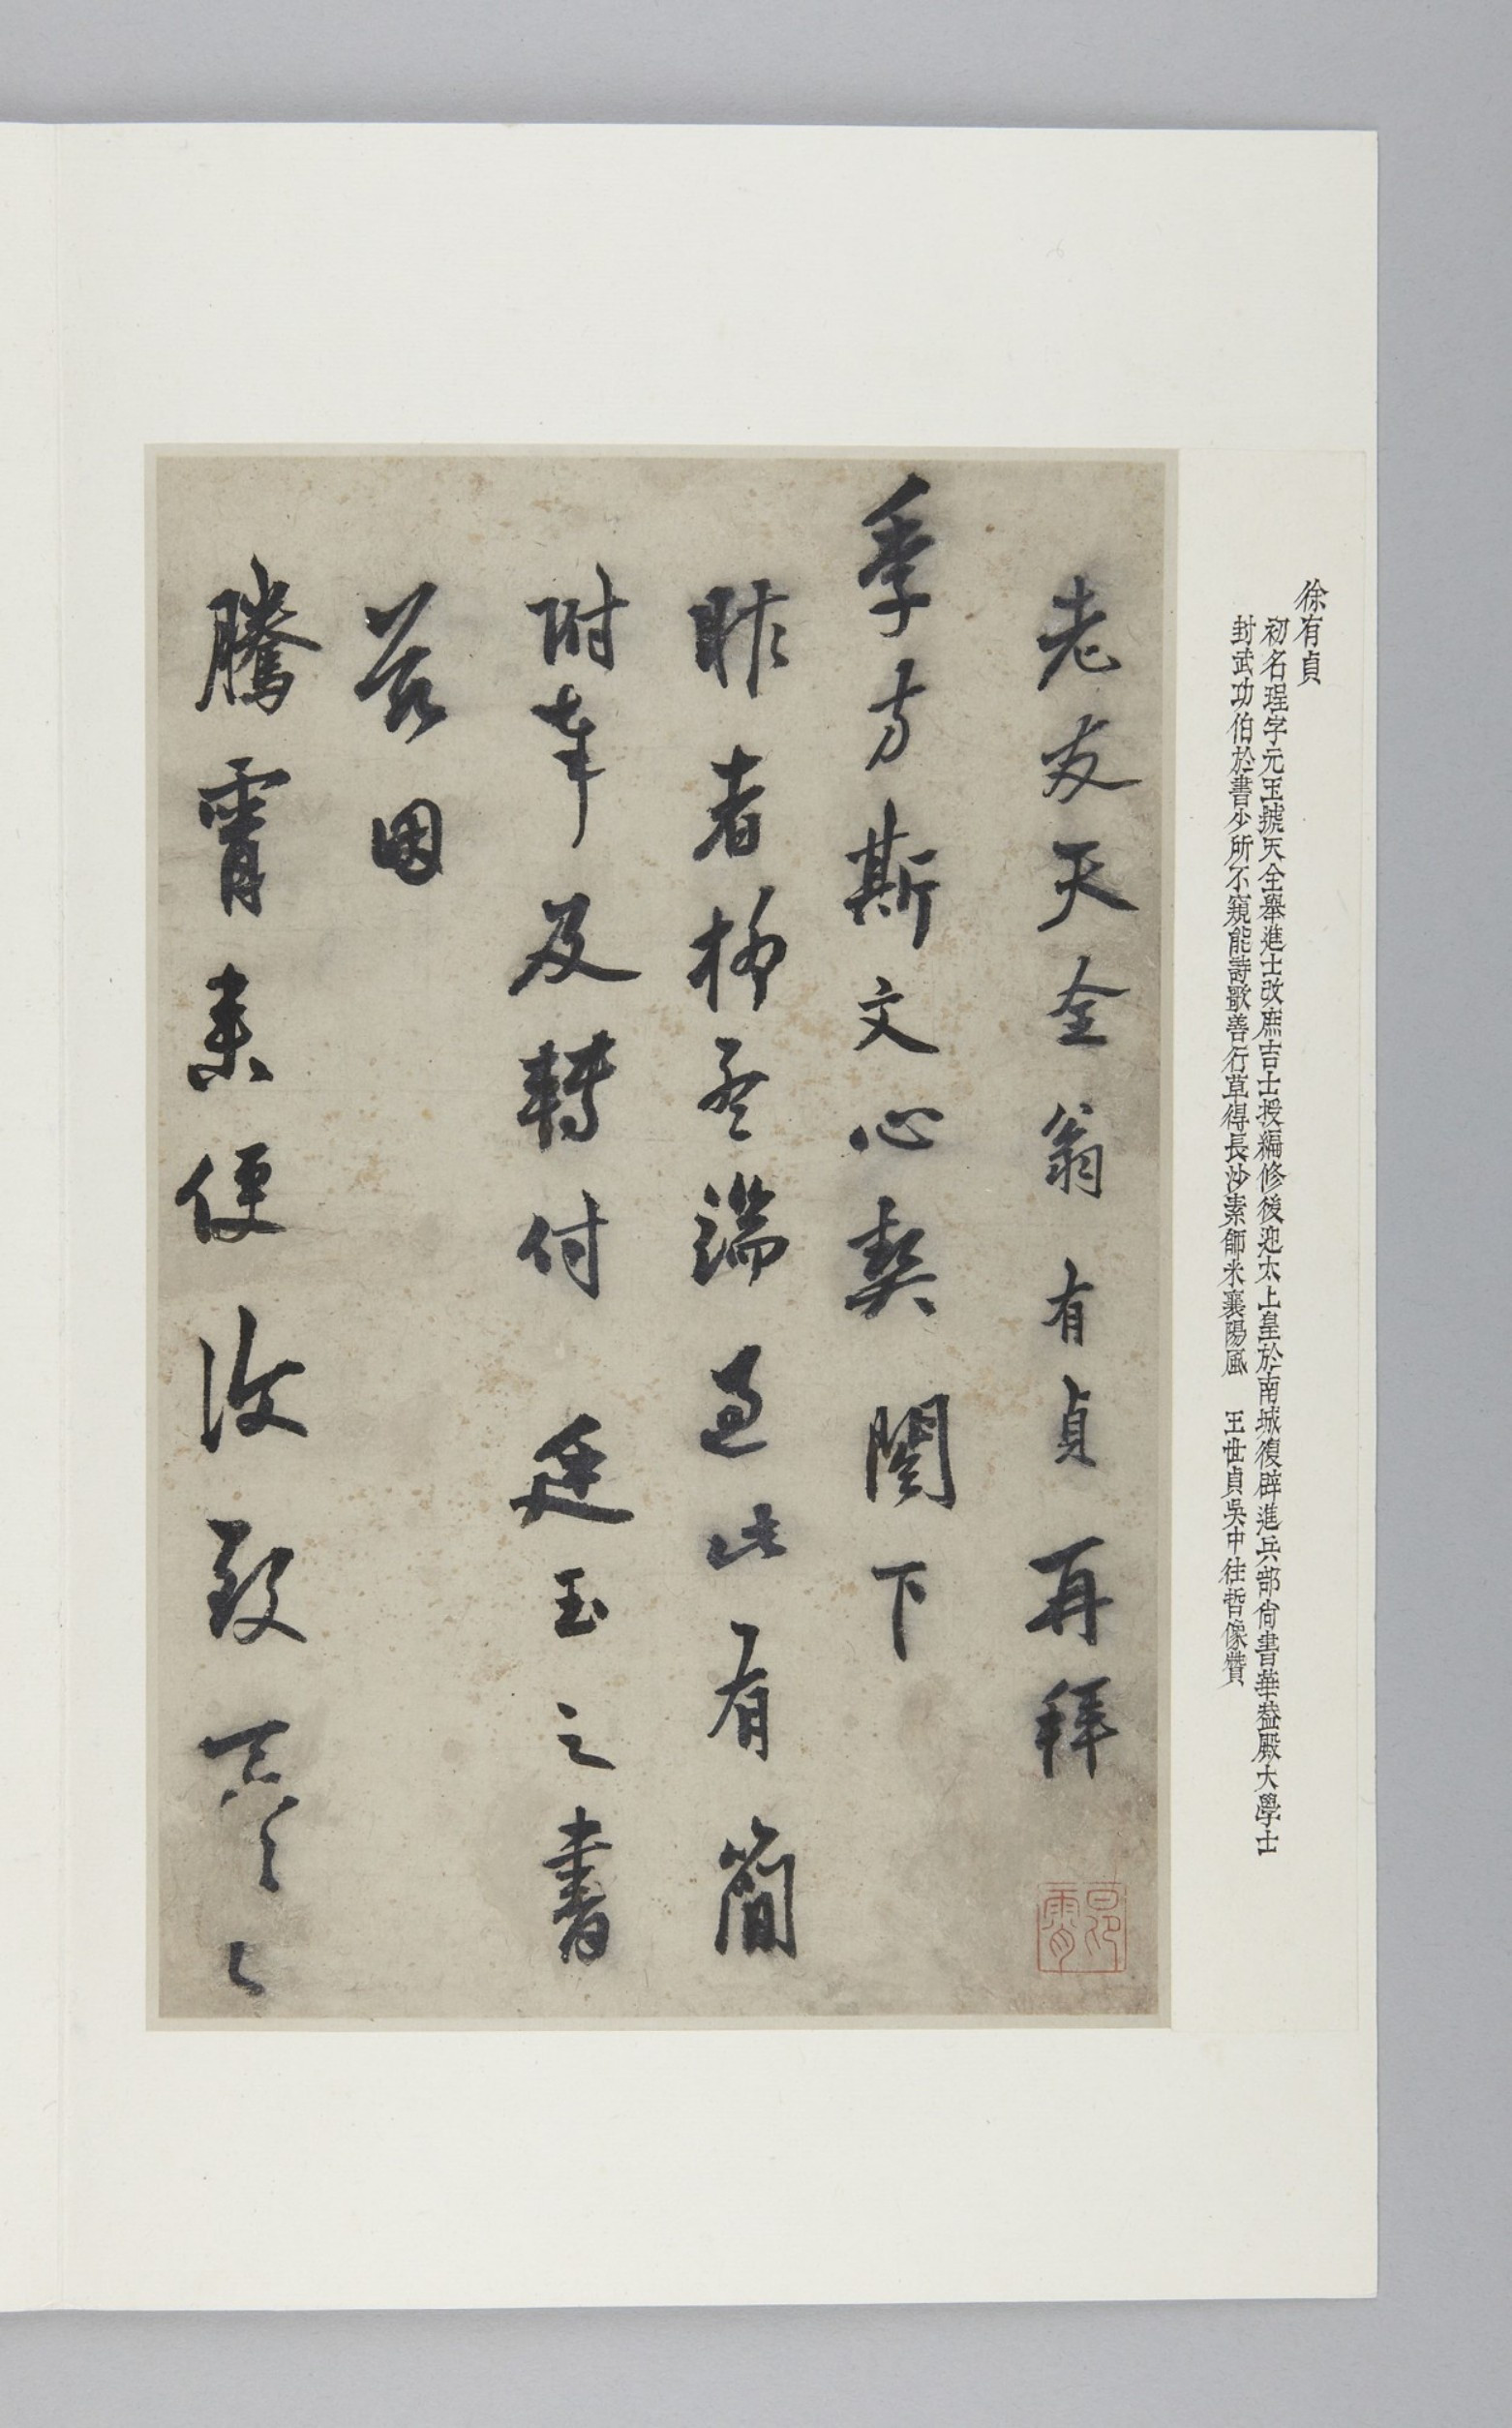 徐有貞
初名珵字元玉號天全舉進士改庶吉士授編修後迎太上皇於南城復辟進兵部尚書華葢殿大學士
封武功伯於書少所不窺能詩歌善行草得長沙素師米襄陽風　王世貞吳中往哲像贊
老友天全翁有貞再拜
季方斯文心契閣下
昨者孟端過此有簡
附奉及轉付廷玉之書
茲因
騰霄來便